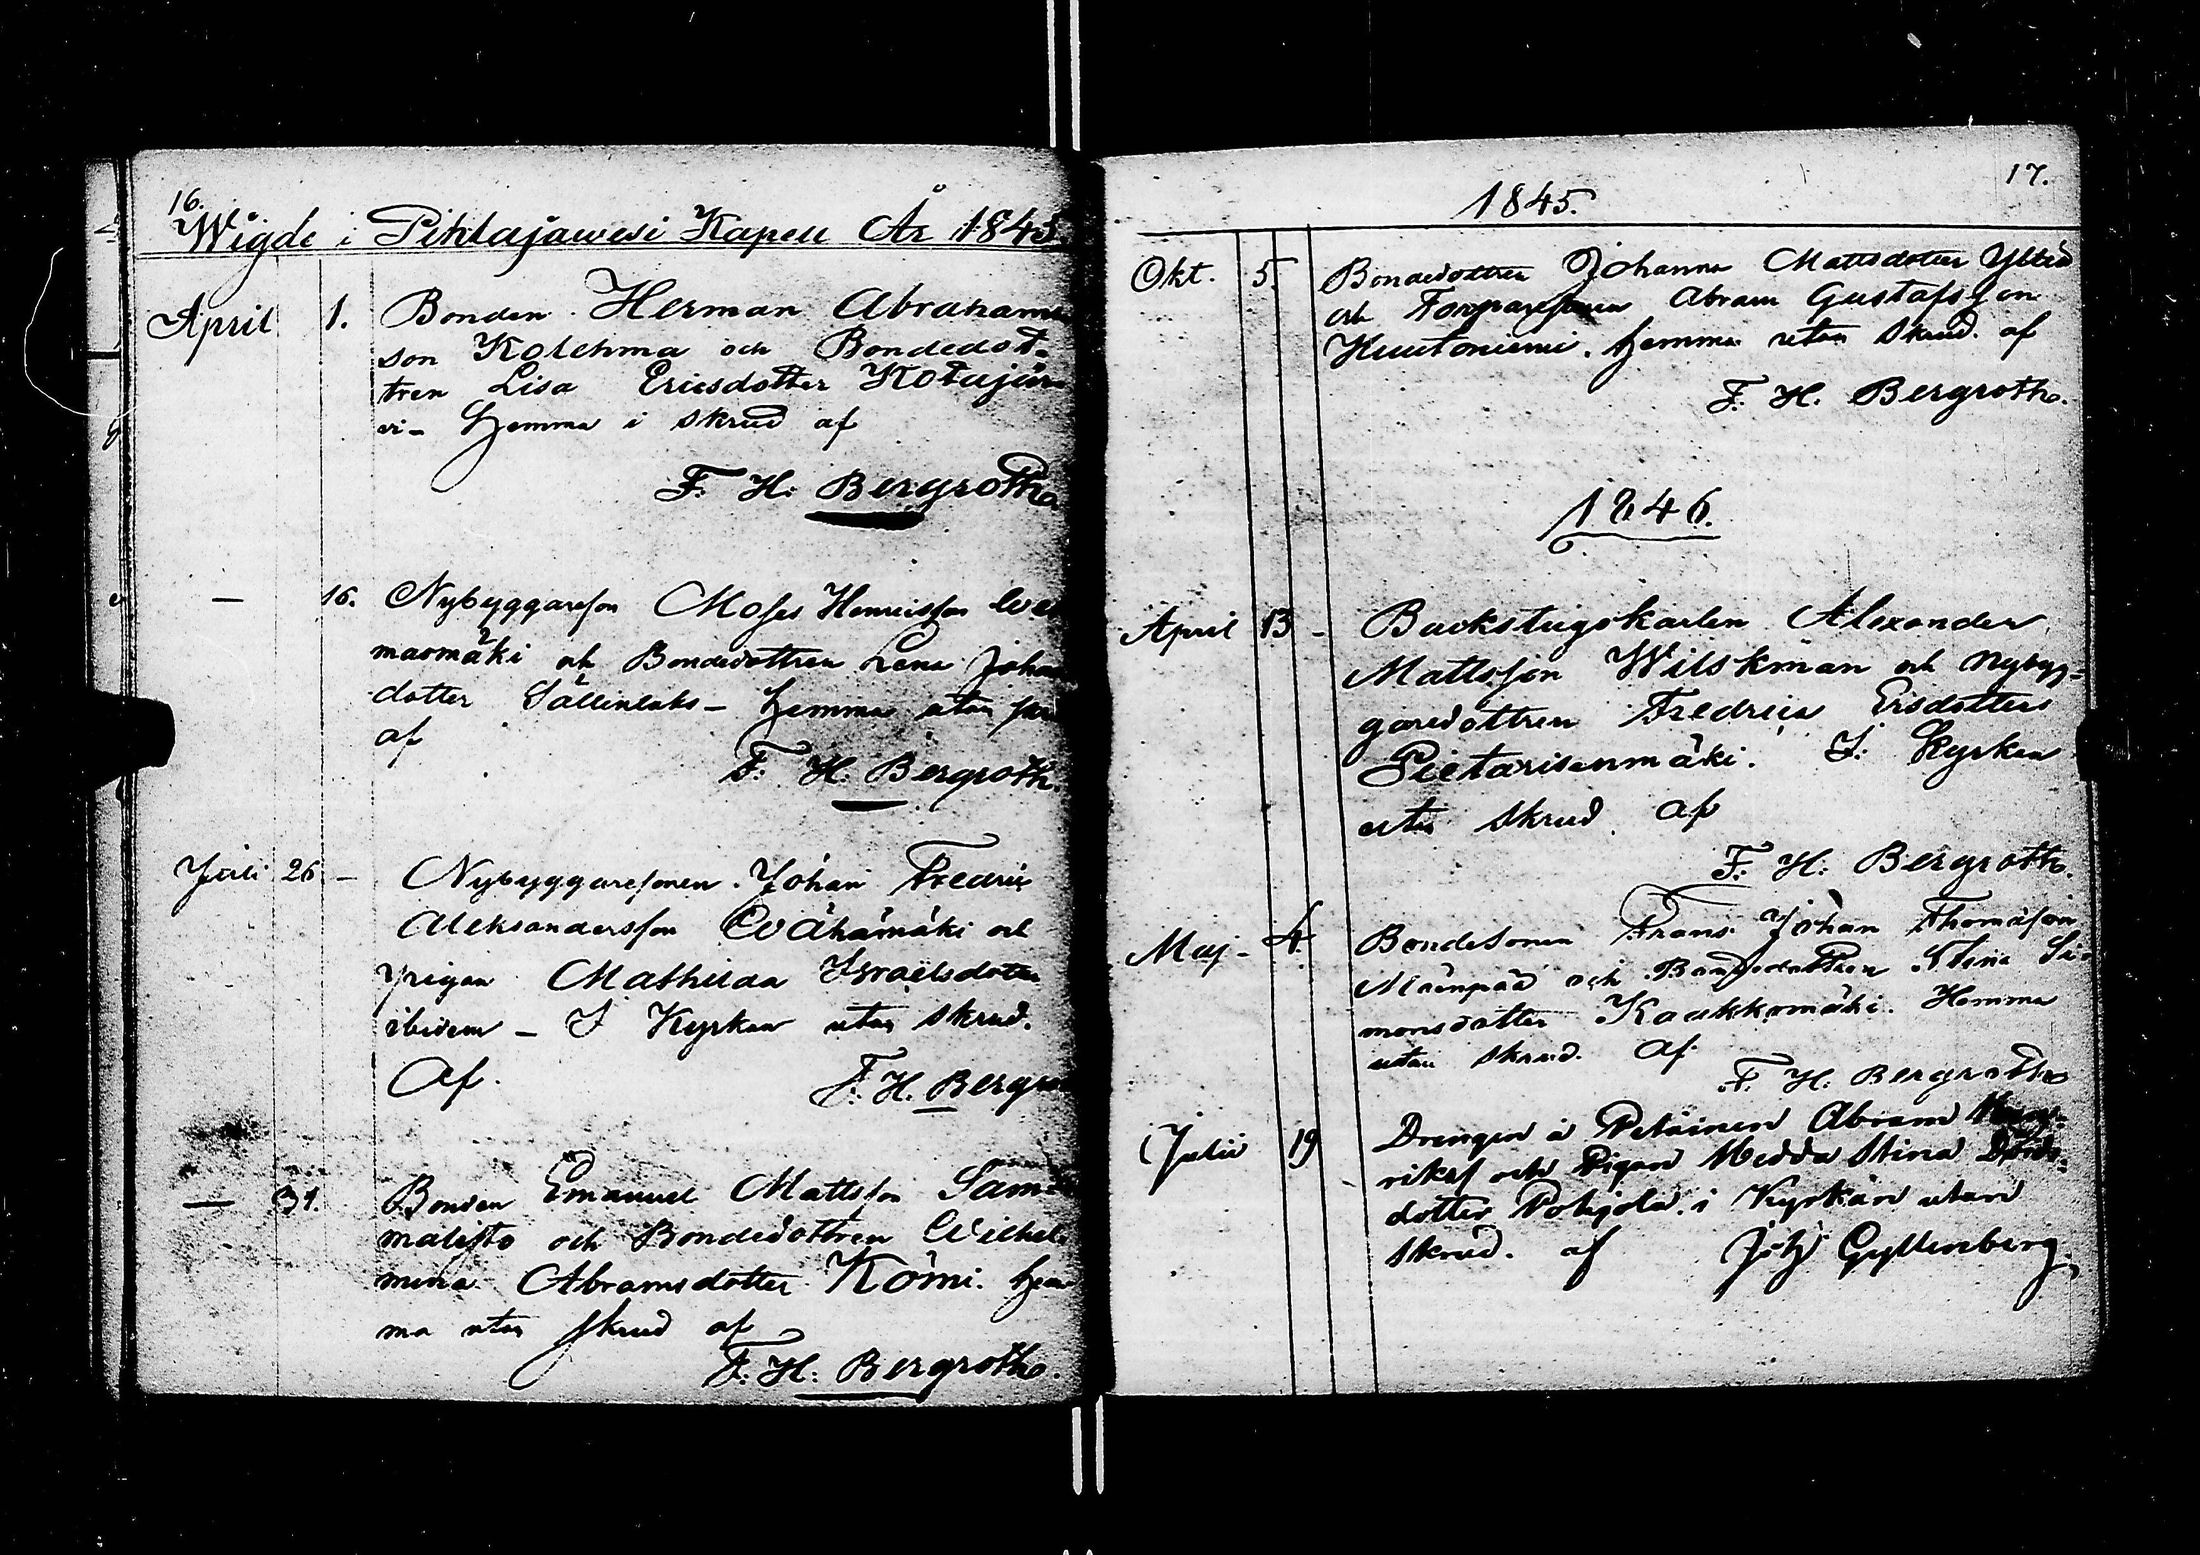 16.
Wigde i Pihlajawesi Kapell År 1845.
April 1. Bonden Herman Abrahams
son Kolehma och Bondedot-
tren Lisa Ericsdotter Kotajär-
vi - hemma i skrud af
F. H. Bergroth.
— 16. Nybyggareson Moses Henricsson
masmäki och Bondedottren Lena Johans
dotter Sällinlaks - hemma utan skrud
af
F. H. Bergroth.
Juli 26 - Nybyggaresonen Johan Fredric
Aleksandersson Wähämäki och
pigan Mathilda Israelsdotter
ibidem - I Kyrkan utan skrud.
Af. F. H. Bergro
— 31. Bonden Emanuel Mattsson Sam-
malisto och Bondedottren Wilhel-
mina Abramsdotter Kömi. hem
ma utan skrud af
F. H. Bergroth.
17.
1845.
Okt. 5. Bondedottren Johanna Mattsdotter
och Torparesonen Abram Gustafsson
Kuutoniemi. hemma utan skrud. af
F. H. Bergroth.
1846.
April 13 - Backstugokarlen Alexander
Mattsson Wilskman och Nybyg-
garedottren Fredrica Ersdotter
Pietarisenmäki. I Kyrkan
utan skrud. af
F. H. Bergroth.
Maj - 4. Bondesonen Frans Johan Thomasson
Mäenpää och Bondedottren Stina Si-
monsdotter Kaukkomäki. Hemma
utan skrud. af
F. H. Bergroth
Julii 19 Drengen å Petäinen Abram
riksf och Pigan Hedda Stina
dotter Pohjola i Kyrkan utan
skrud. af Joh Gyllenberg.